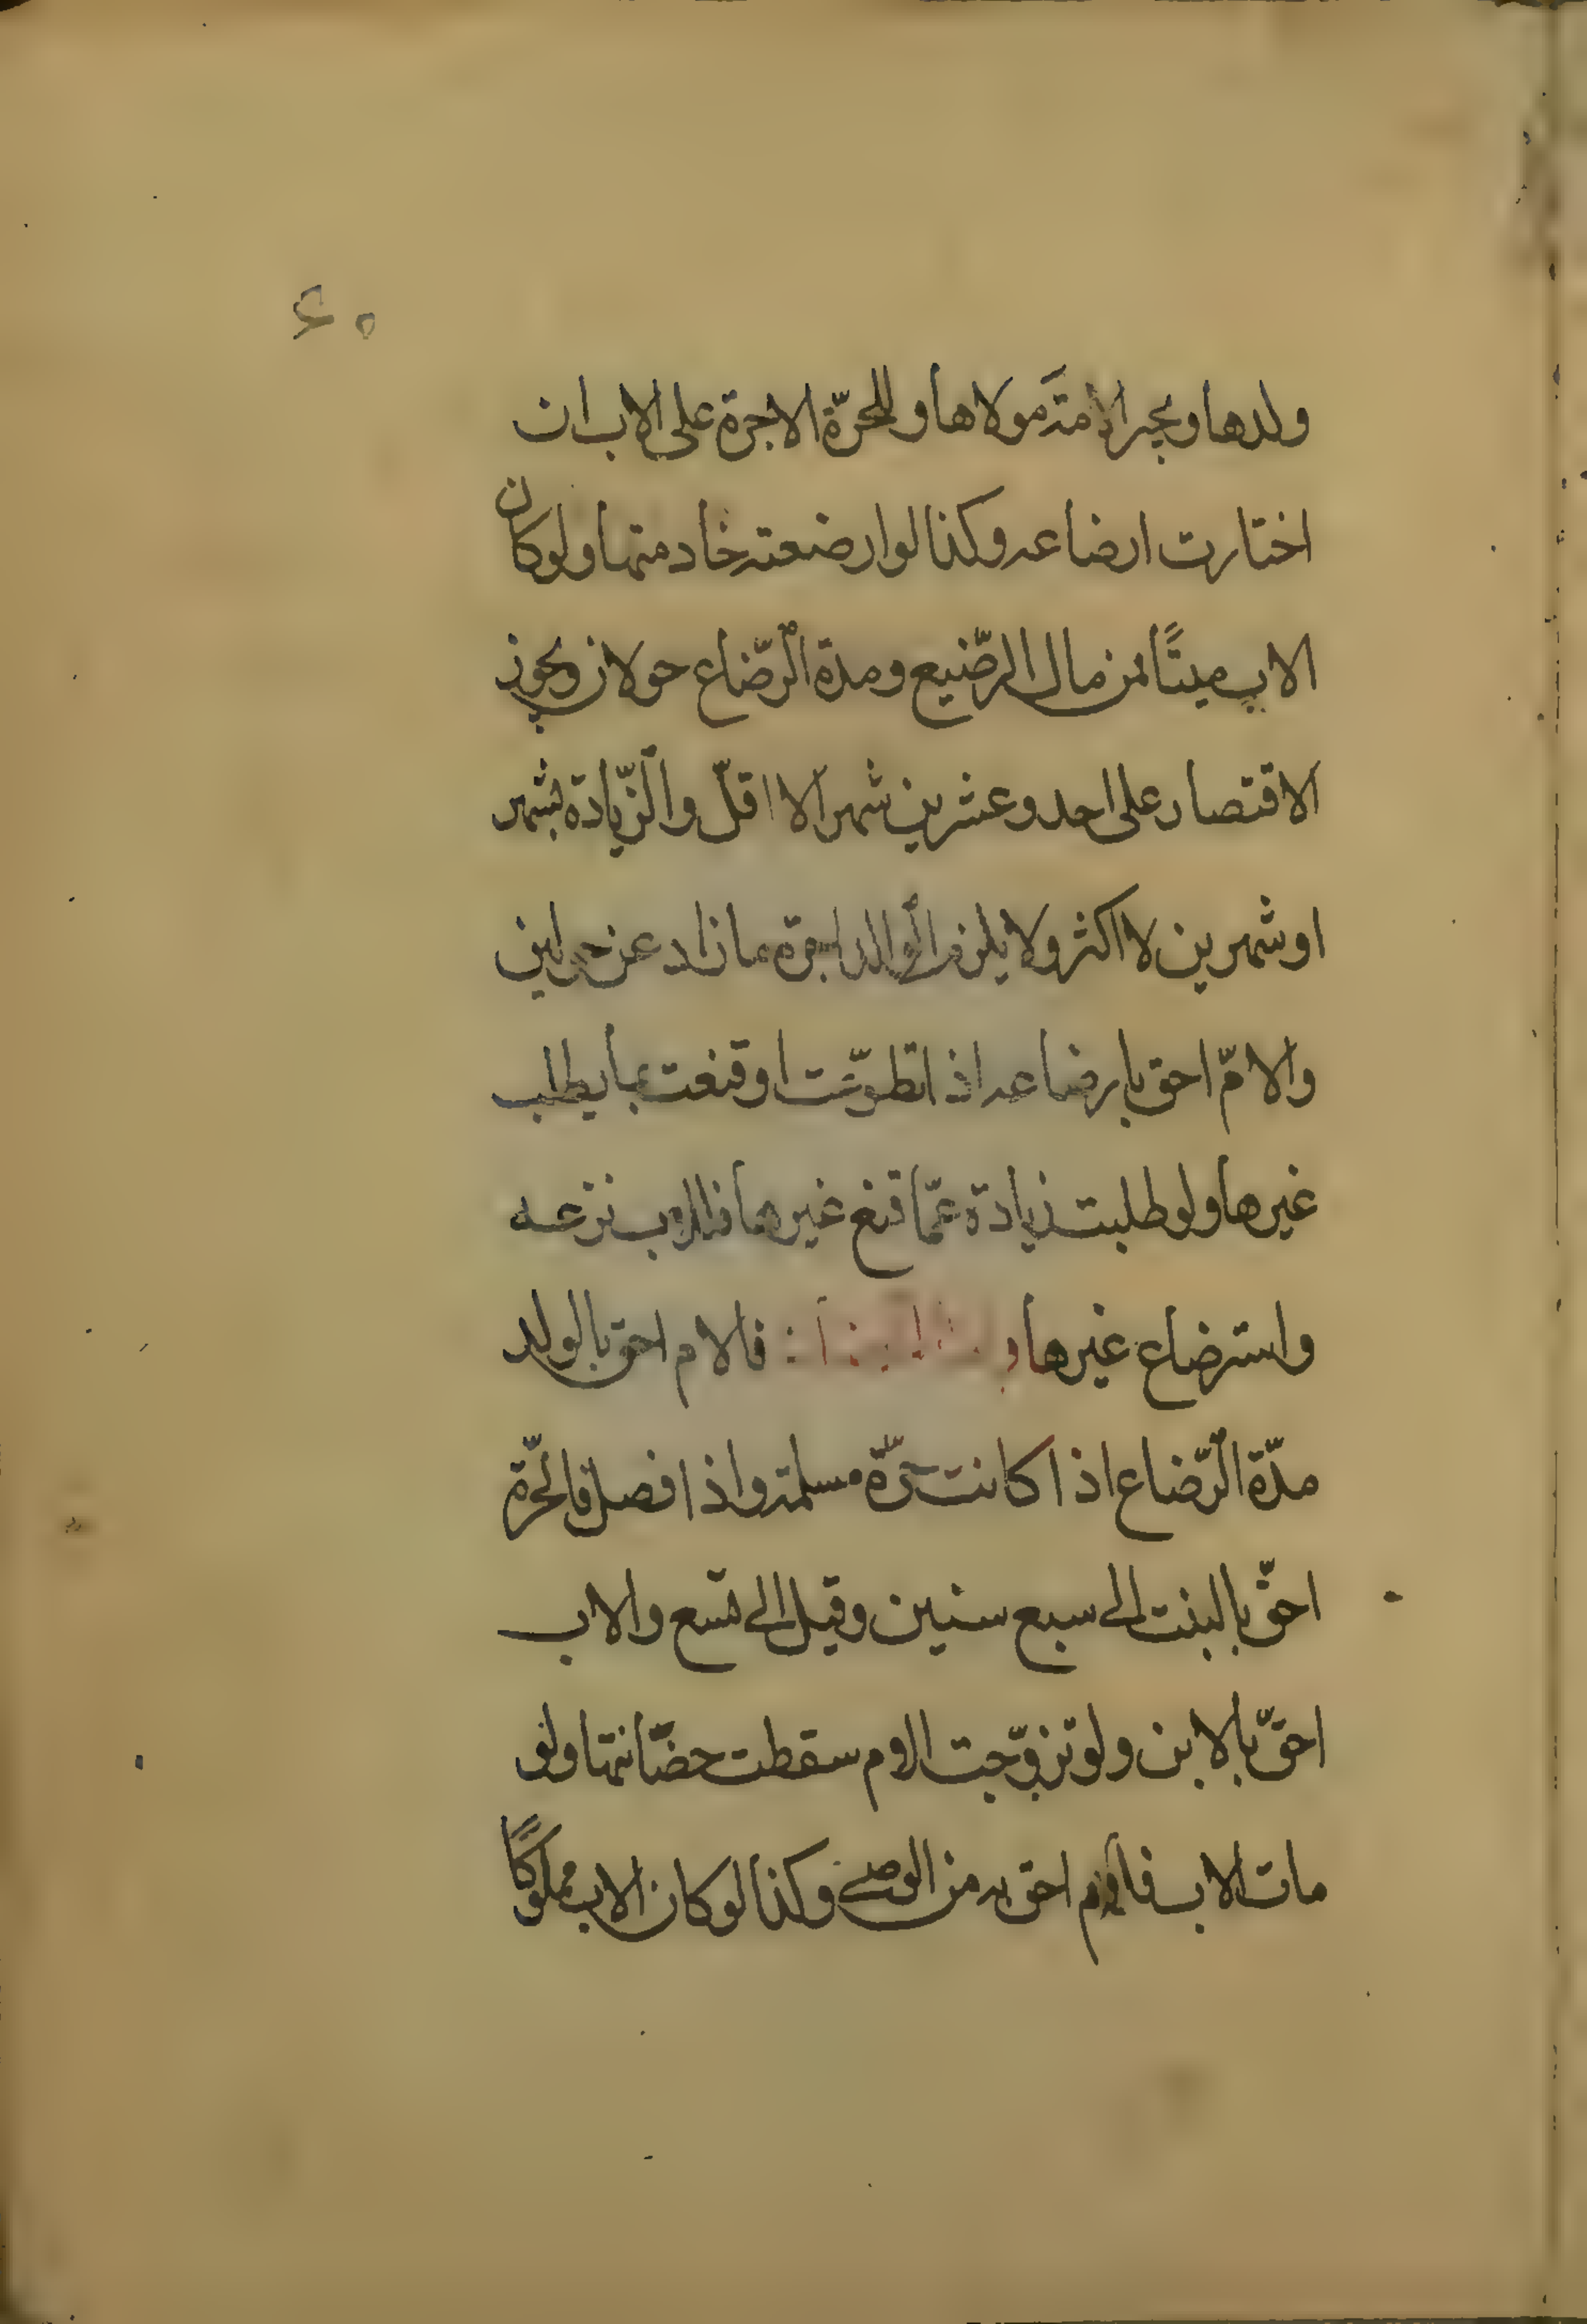 ۶۰
ولدها ويجبر الامة مولاها وللحرّة الاجرة على الاب ان
اختارت ارضاعه وكذا لو ارضعته خادمتها ولو كان
الاب ميتًا فمن مال الرّضيع ومدة الرّضاع حولان ويجوز
الاقتصار على احد وعشرين شهرا لا اقلّ والزّيادة بشهر
او شهرين لا اكثر ولا يلزم الوالد اجرة ما زاد عن حولين
والامّ احق بارضاعه اذا تطوّعت او قنعت بما يطلب
غيرها ولو طلبت زيادة عمّا قنع غيرها فللاب نزعه
واسترضاع غيرها و فالام احق بالولد
مدّة الرّضاع اذا كانت حرّة مسلمة واذا فصل فالحرّة
احقّ بالبنت الى سبع سنين وقيل الى تسع والاب
احقّ بالابن ولو تزوّجت الام سقطت حضانتها ولو
مات الاب فالام احق به من الوصي وكذا لو كان الاب مملوكًا